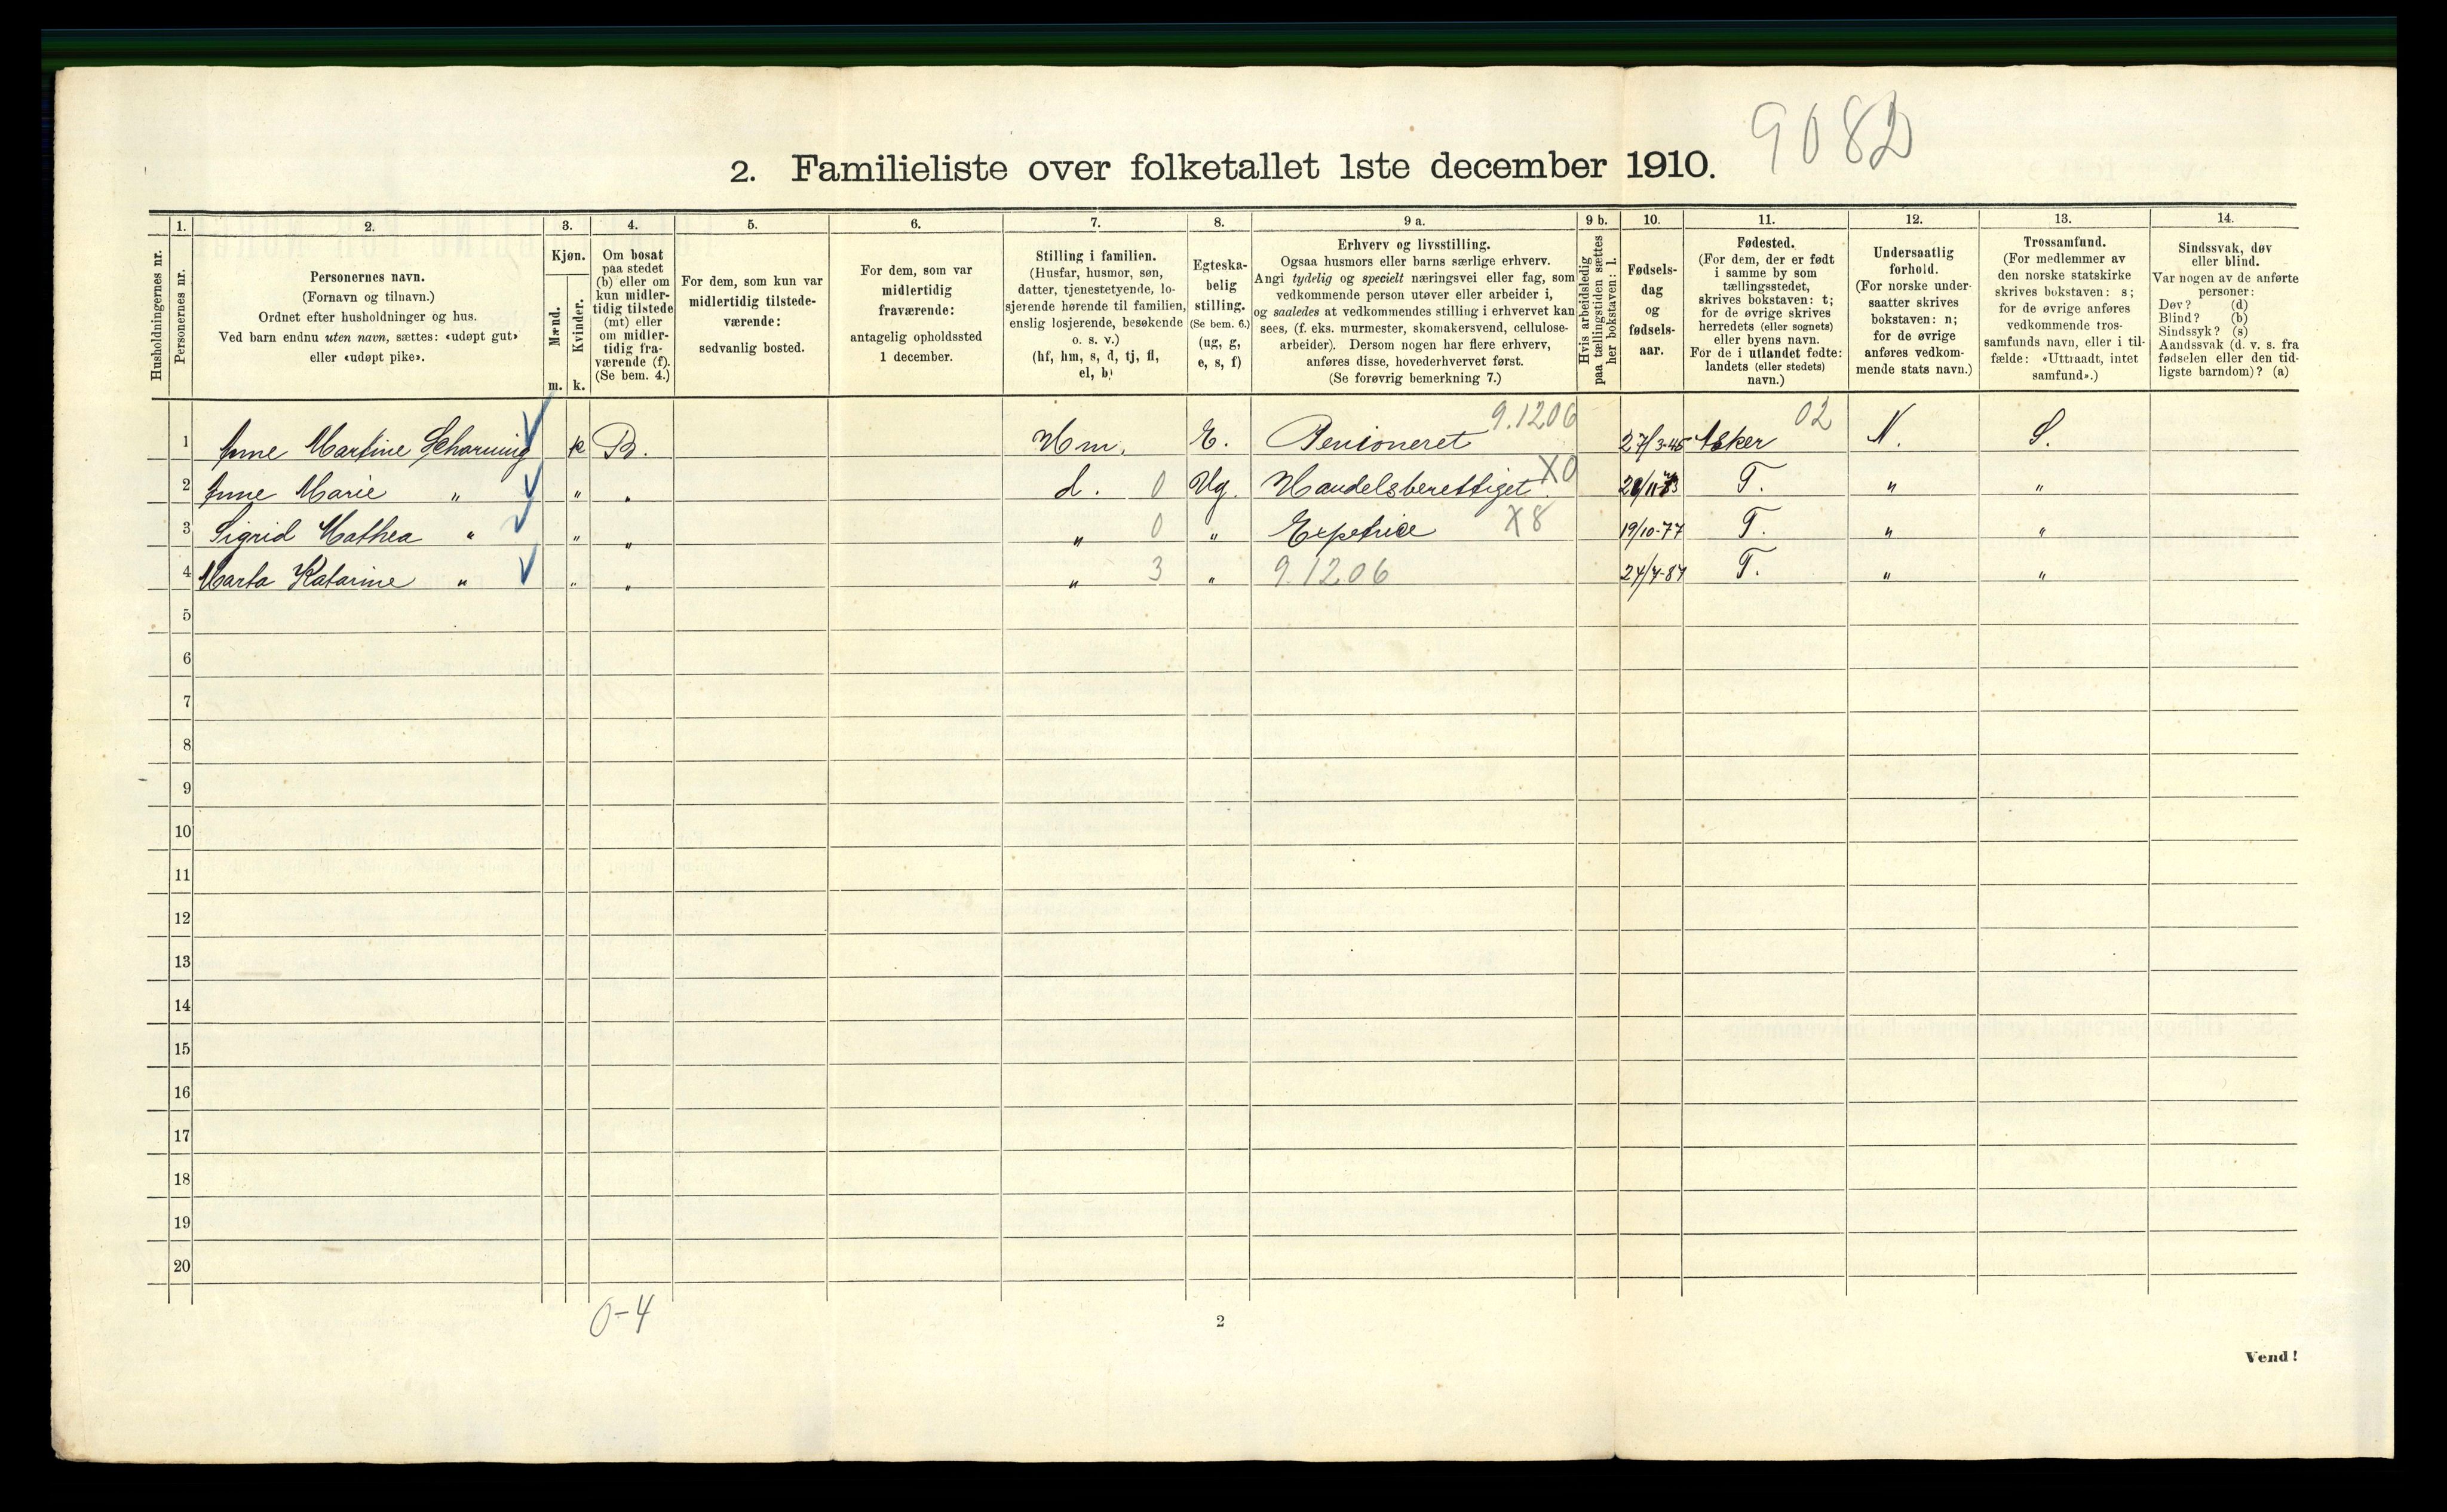 9082
2. Familieliste over folketallet 1ste december 1910.
1. 2. 3. 4. 5. 6. 7. 8. 9 a. 9 b. 10. 11. 12. 13. 14.
Husholdningernes nr.
Personernes nr.
Personernes navn.
(Fornavn og tilnavn.)
Ordnet efter husholdninger og hus.
Ved barn endnu uten navn, sættes: «udøpt gut»
eller «udøpt pike».
Kjøn.
Mænd.
Kvinder.
m. k.
Om bosat
paa stedet
(b) eller om
kun midler-
tidig tilstede
(mt) eller
om midler-
tidig fra-
værende (f).
(Se bem. 4.)
For dem, som kun var
midlertidig tilstede-
værende:
sedvanlig bosted.
For dem, som var
midlertidig
fraværende:
antagelig opholdssted
1 december.
Stilling i familien.
(Husfar, husmor, søn,
datter, tjenestetyende, lo-
sjerende hørende til familien,
enslig losjerende, besøkende
o. s. v.)
(hf, hm, s, d, tj, fl,
el, b)
Egteska-
belig
stilling.
(Se bem. 6.)
(ug, g,
e, s, f)
Erhverv og livsstilling.
Ogsaa husmors eller barns særlige erhverv.
Angi tydelig og specielt næringsvei eller fag, som
vedkommende person utøver eller arbeider i,
og saaledes at vedkommendes stilling i erhvervet kan
sees, (f. eks. murmester, skomakersvend, cellulose-
arbeider). Dersom nogen har flere erhverv,
anføres disse, hovederhvervet først.
(Se forøvrig bemerkning 7.)
Hvis arbeidsledig
paa tællingstiden sættes
her bokstaven: l.
Fødsels-
dag
og
fødsels-
aar.
Fødested.
(For dem, der er født
i samme by som
tællingsstedet,
skrives bokstaven: t;
for de øvrige skrives
herredets (eller sognets)
eller byens navn.
For de i utlandet fødte:
landets (eller stedets)
navn.)
Undersaatlig
forhold.
(For norske under-
saatter skrives
bokstaven: n;
for de øvrige
anføres vedkom-
mende stats navn.)
Trossamfund.
(For medlemmer av
den norske statskirke
skrives bokstaven: s;
for de øvrige anføres
vedkommende tros-
samfunds navn, eller i til-
fælde: «Uttraadt, intet
samfund».)
Sindssvak, døv
eller blind.
Var nogen av de anførte
personer:
Døv? (d)
Blind? (b)
Sindssyk? (s)
Aandssvak (d. v. s. fra
fødselen eller den tid-
ligste barndom)? (a)
1 Anne Martine Scharning k B. Hm. E. Pensioneret 9.1206 27/3-45 Asker 02 N. S.
2 Anne Marie " " " d. 0 Ug. Handelsberettiget X0 T. " "
3 Sigrid Mathea " " " " 0 " Expetrice X8 19/10-77 T. " "
4 Marta Katarine " " " " 3 " 9.1206 T. " "
5
6
7
8
9
10
11
12
13
14
15
16
17
18
19
20
0-4
2
Vend!